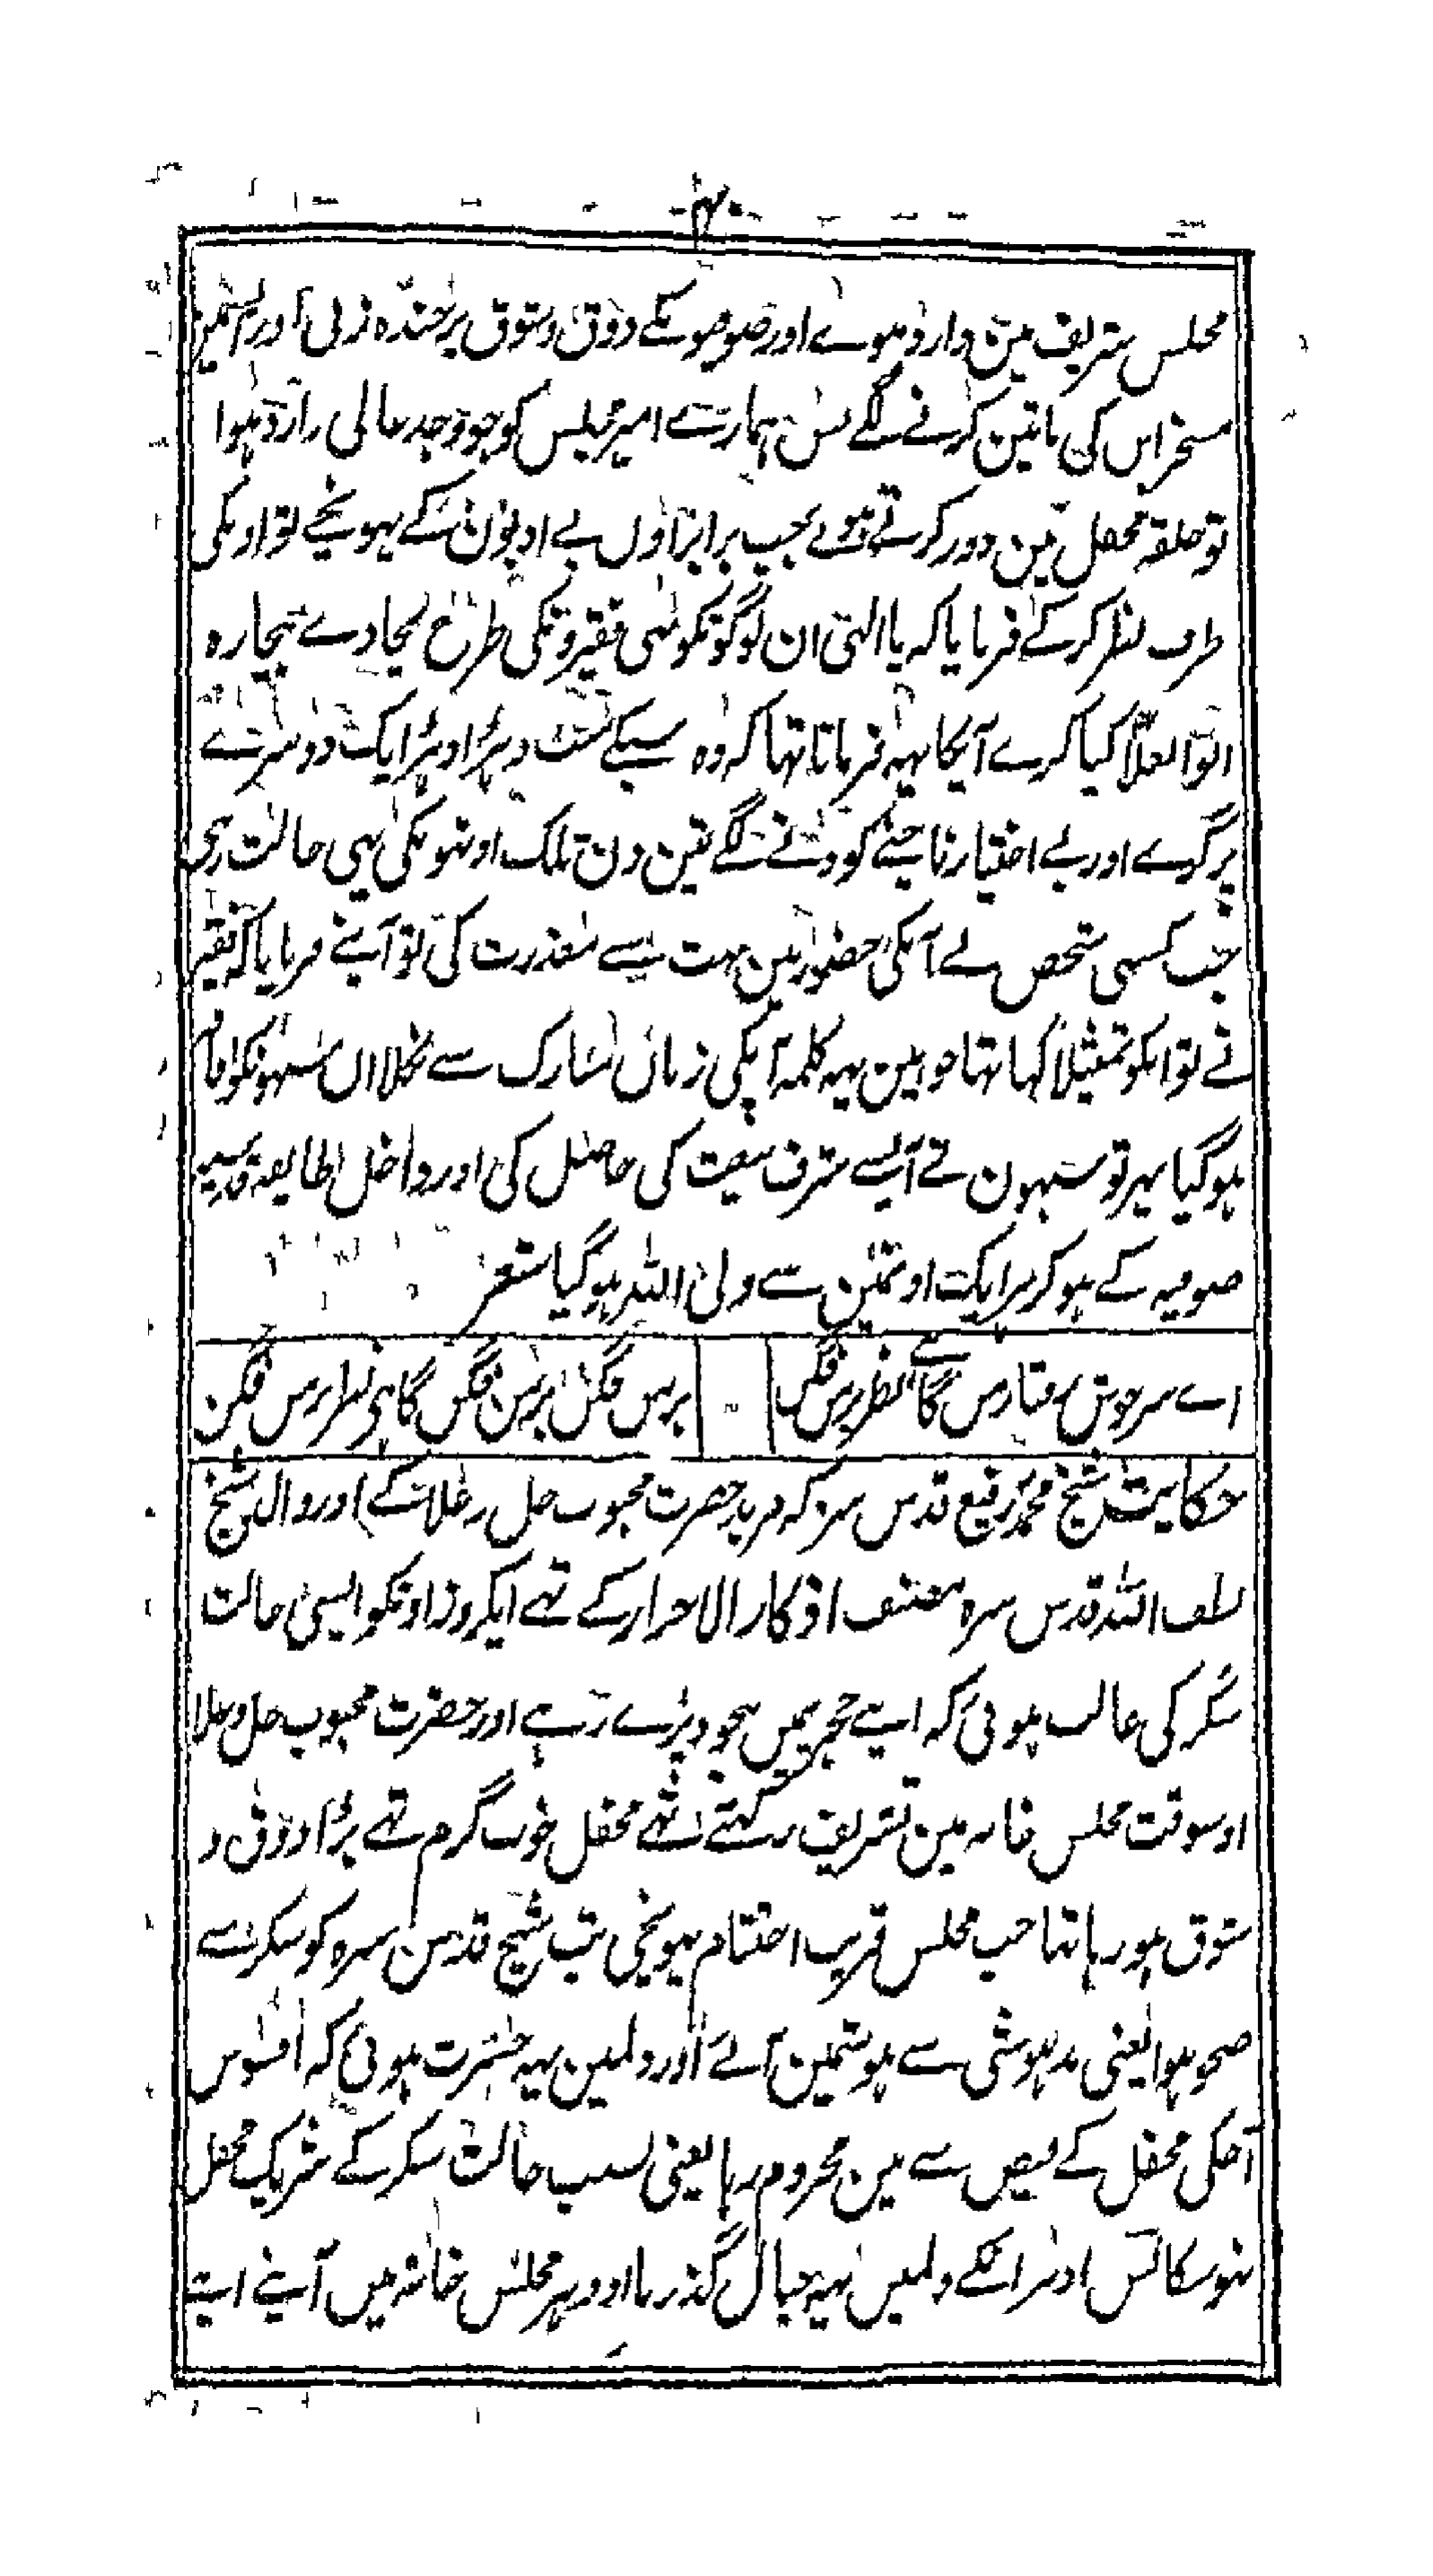 مجلس شریف مین وارد ہوے اور صوفیونکے ذوق و شوق پر خندہ زنی اور
مسخراپن کی باتین کرنے لگے بس ہمارے امیر مجلس کو جو وجد حالی وارد ہوا
تو حلقہ محفل مین دور کرتے ہوے جب برابر اون بے ادبون کے پہونچے تو اونکی
طرف نظر کرکے فرمایا کہ یا الہی ان لوگونکو بھی فقیرونکی طرح نچادے بیچارہ
ابوالعلا کیا کرے آپکا یہہ فرمانا تہا کہ وہ سبکے سب
پر گرے اور بے اختیار ناچنے کودنے لگے تین دن تلک اونہونکی یہی حالت رہی
جب کسی شخص نے آپکی حضور مین بہت سے معذرت کی تو آپنے فرمایا کہ فقیر
نے تو انکو تمثیلاً کہا تہا جو ہین یہہ کلمہ آپکی زبان مبارک سے نکلا ان سبہونکو افاقہ
ہوگیا پہر تو سبہون نے آپسے شرف بیعت کی حاصل کی اور داخل طایفہ قدسیہ
صوفیہ کے ہو کر ہر ایک اونمین سے ولی اللہ ہوگیا شعر
اے سرخوش گاہے نظر برمن فگن
برمن فگن برمن فگن گاہی نظر برمن فگن
حکایت شیخ محمد رفیع قدس سرہ کہ مرید حضرت محبوب جل وعلا کے اور والد شیخ
لطف اللہ قدس سرہ مصنف اذکار الاحرار کے تہے ایکروز اونکو ایسی حالت
سکر کی غالب ہوئی کہ اپنے حجریمین بیخود پڑے رہے اور حضرت محبوب جل وعلا
اوسوقت مجلس خانہ مین تشریف رکہتے تہے محفل خوب گرم تہے بڑا ذوق و
شوق ہو رہا تہا جب مجلس قریب اختتام پہونچی تب شیخ قدس سرہ کو سکر سے
صحو ہوا یعنی مدہوشی سے ہوشمین آئے اور دلمین یہہ حسرت ہوئی کہ افسوس
آجکی محفل کے فیض سے مین محروم رہا یعنی بسبب حالت سکر کے شریک محفل
نہوسکا بس ادہر انکے دلمیں یہہ خیال گذرا اور اودہر مجلس خانہ میں آپنے اپنے